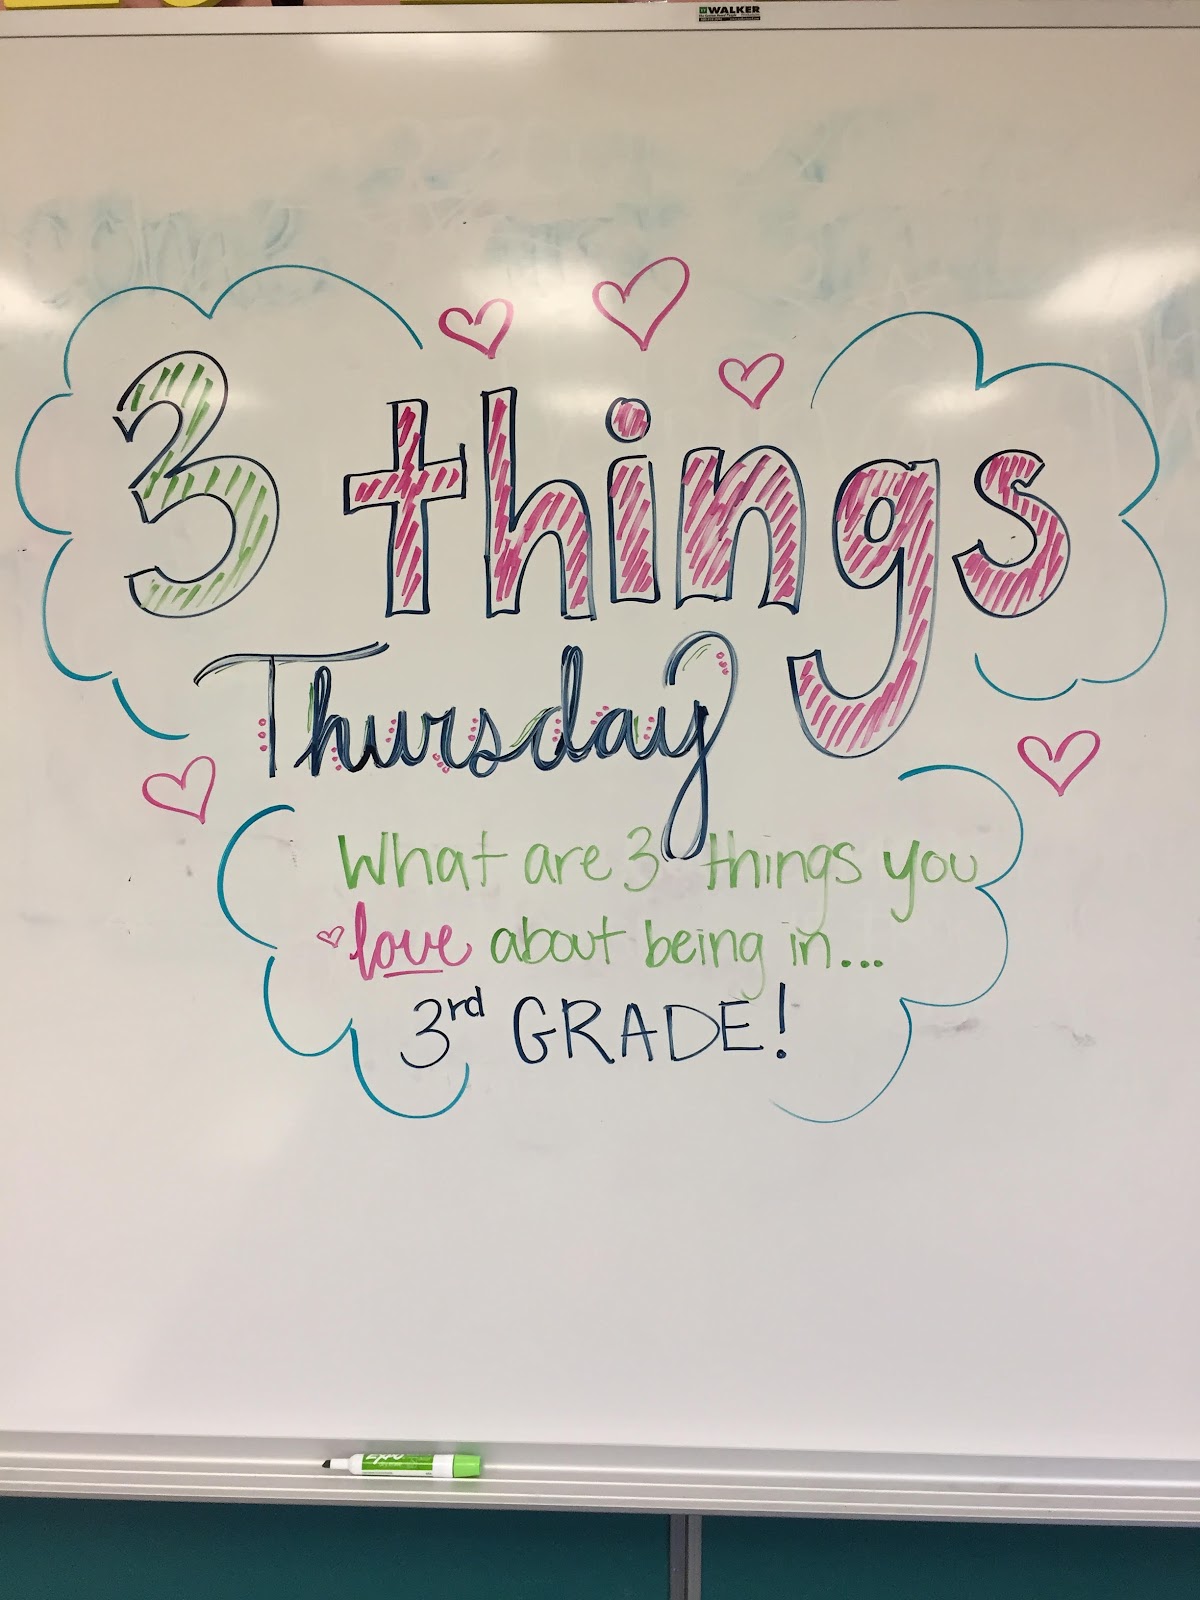 WALKER
3 things
Thursday
What are 3 things you
love about being in...
3rd GRADE!
Expo